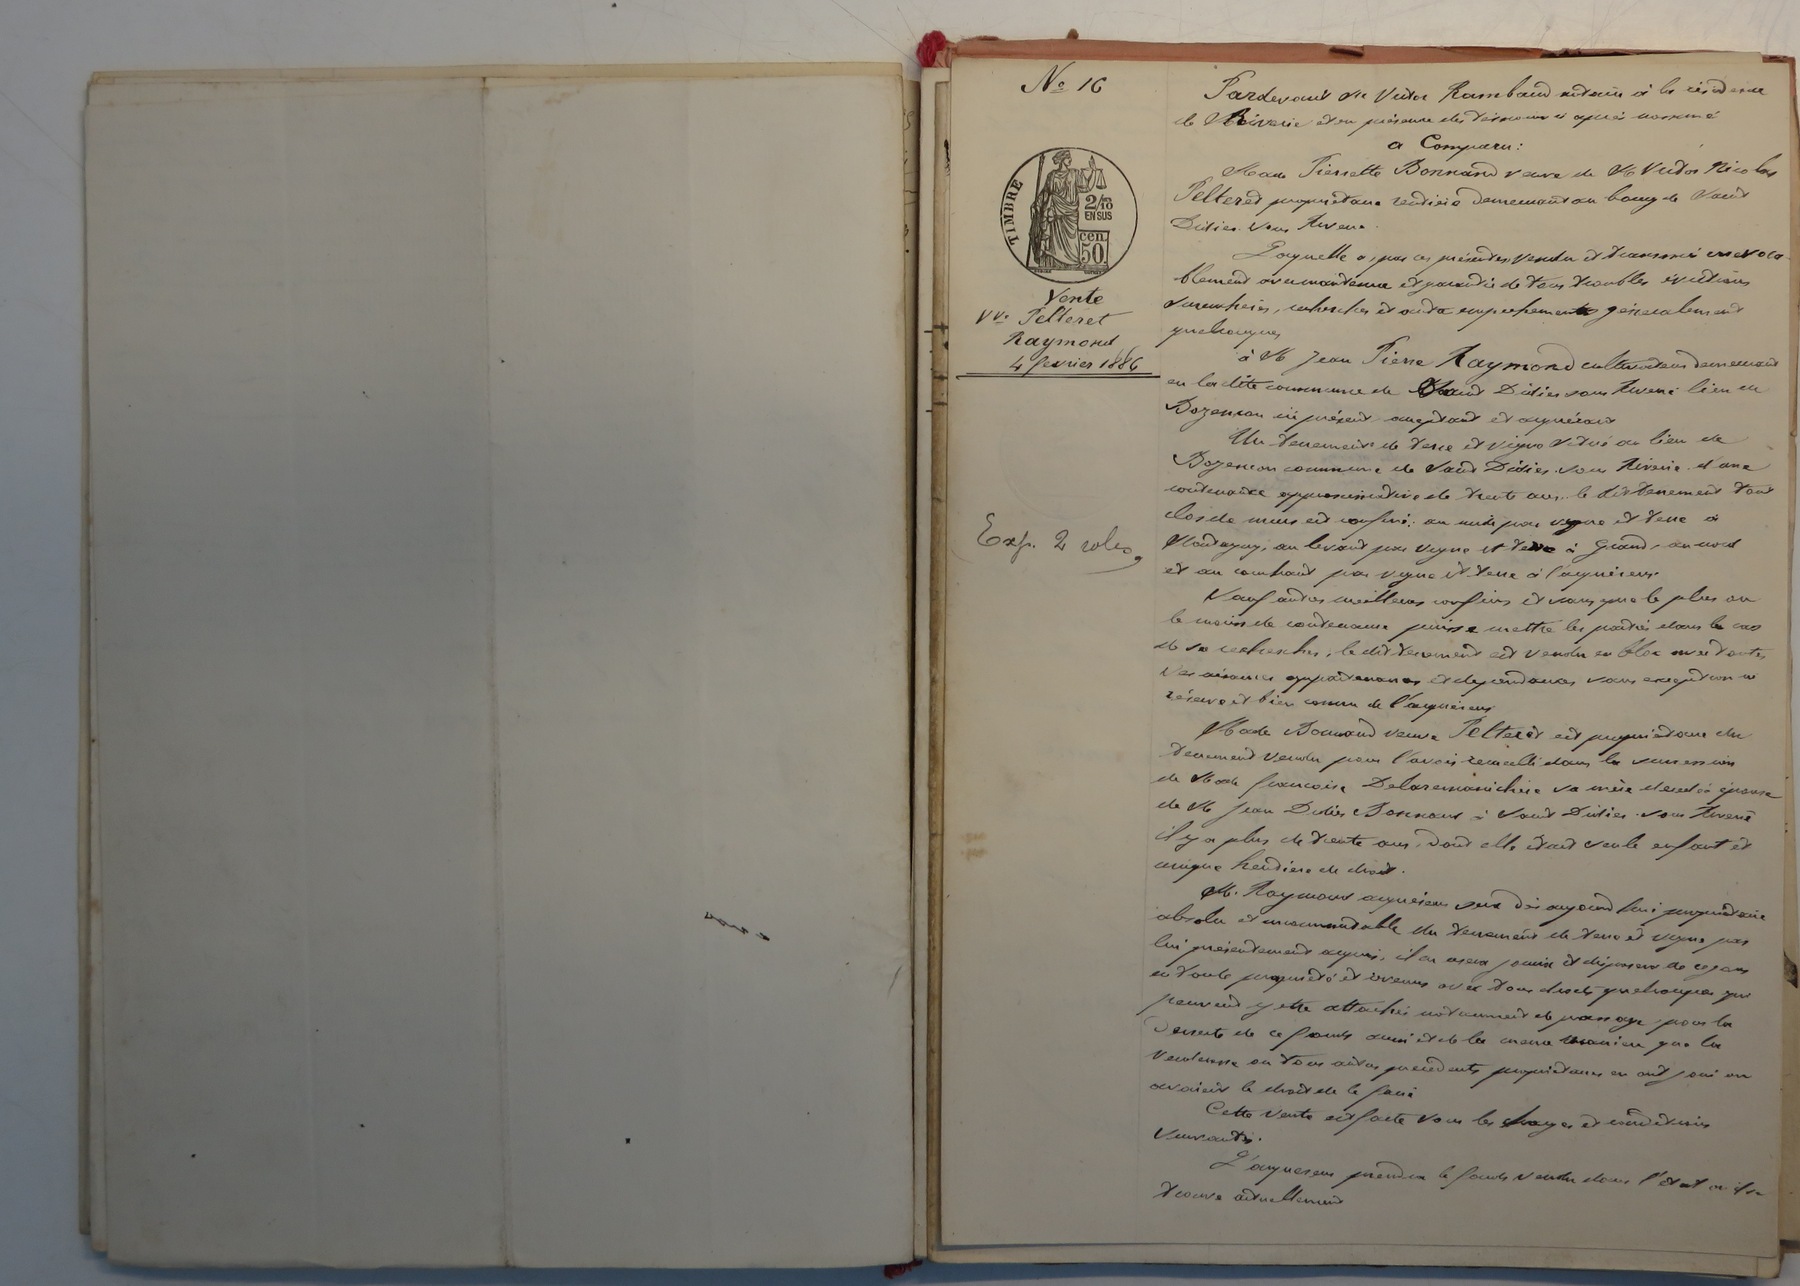 No 16
TIMBRE
2/10
EN SUS
cen.
50.
Vente
Vve Pelleret
Raymond
4 février 1886
Exp. 2 roles
Pardevant Me Victor Rambaud notaire à la résidence
de Riverie et en présence des témoins ci après nommés
a Comparu:
Made Pierrette Bonnand veuve de M Victor Nicolas
Pelleret propriétaire rentière demeurant au bourg de Saint
Didier sous Riverie.
Laquelle a, par ces présentes, vendu et transmis irrévoca-
blement avec maintenue et garantie de tous troubles évictions
surenchères, recherches et autres empechements généralement
quelconques
à M Jean Pierre Raymond cultivateur demeurant
en la dite commune de Saint Didier sous Riverie lieu de
Bozançon ici présent acceptant et acquéreur
Un tenement de terre et vigne situé au lieu de
Bozançon commune de Saint Didier sous Riverie d'une
contenance approximative de trente ares, le dit tenement tout
clos de murs est confiné: au midi par vigne et terre à
Montagny, au levant par vigne et terre à Grand, au nord
et au couchant par vigne et terre à l'acquéreur.
Sauf autres meilleurs confins et sans que le plus ou
le moins de contenance puisse mettre les parties dans le cas
de se rechercher, le dit tenement est vendu en bloc avec toutes
ses aisances appartenances et dépendances sans exception ni
réserve et bien connu de l'acquéreur
Made Bonnand veuve Pelleret est propriétaire du
tenement vendu pour l'avoir recueilli dans la succession
de Made Françoise sa mère décédée épouse
de M Jean Didier Bonnand à Saint Didier sous Riverie
il y a plus de trente ans, dont elle était seule enfant et
unique héritière de droit.
M. Raymond acquéreur sera dès aujourd'hui propriétaire
absolu et incommutable du tenement de terre et vigne par
lui présentement acquis, il en usera jouira et disposera de ce jour
en toute propriété et revenus avec tous droits quelconques qui
peuvent y être attachés notamment de passage pour la
desserte de ce fonds ainsi et de la même manière que la
venderesse ou tous autres précédents propriétaires en ont joui ou
avaient le droit de le faire
Cette vente est faite sous les charges et conditions
suivantes.
L'acquéreur prendra le fonds vendu dans l'état où il se
trouve actuellement